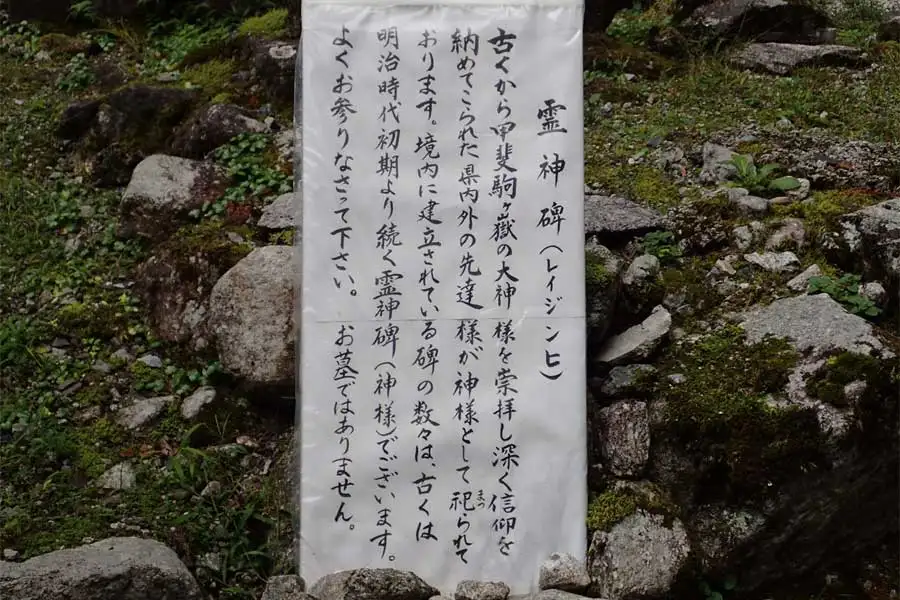 霊神碑（レイジンヒ）
古くから甲斐駒ヶ嶽の大神様を崇拝し深く信仰を
納めてこられた県内外の先達様が神様として祀られて
まつ
おります。境内に建立されている碑の数々は、古くは
明治時代初期より続く霊神碑（神様）でございます。
よくお参りなさって下さい。お墓ではありません。